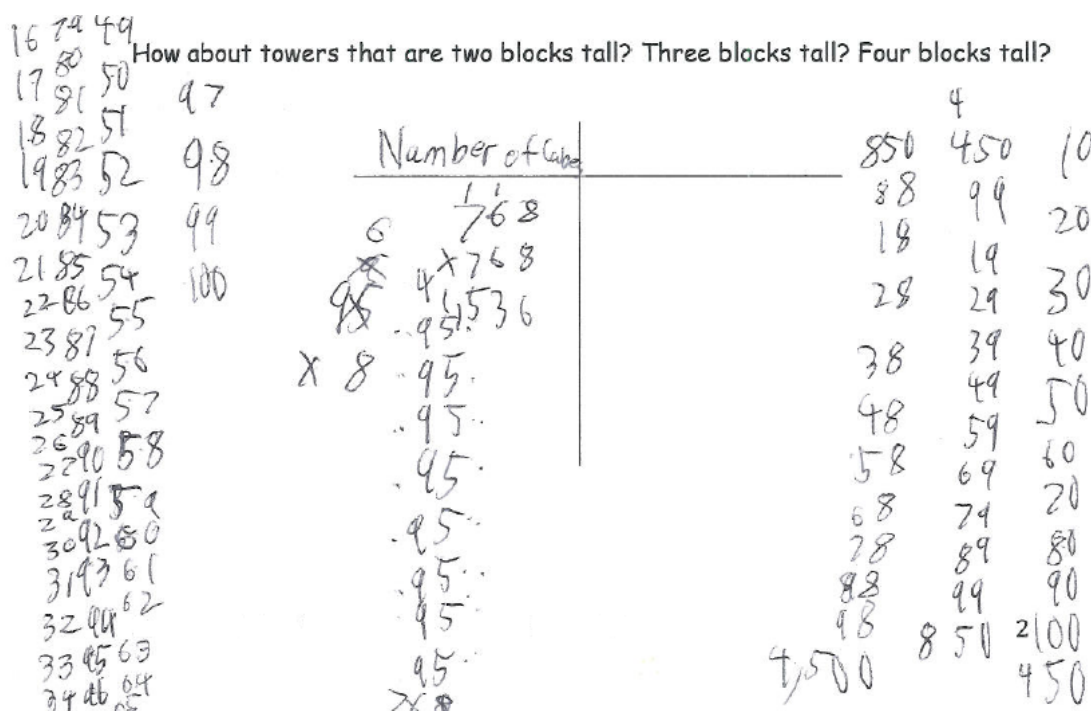 How about towers that are two blocks tall? Three blocks tall? Four blocks tall?
16 79 49
17 80 50
18 81 51
19 82 52
20 83 53
21 84 54
22 85 55
23 86 56
24 87 57
25 88 58
26 89 59
27 90 60
28 91 61
29 92 62
30 93 63
31 94 64
32 95 65
33 96
34
97
98
99
100
Number of
768
x768
1,536
6
95
x 8
4
95
95
95
95
95
95
95
95
768
850
88
18
28
38
48
58
68
78
88
98
4,500
4
450
99
19
29
39
49
59
69
79
89
99
850
10
20
30
40
50
60
70
80
90
2100
450